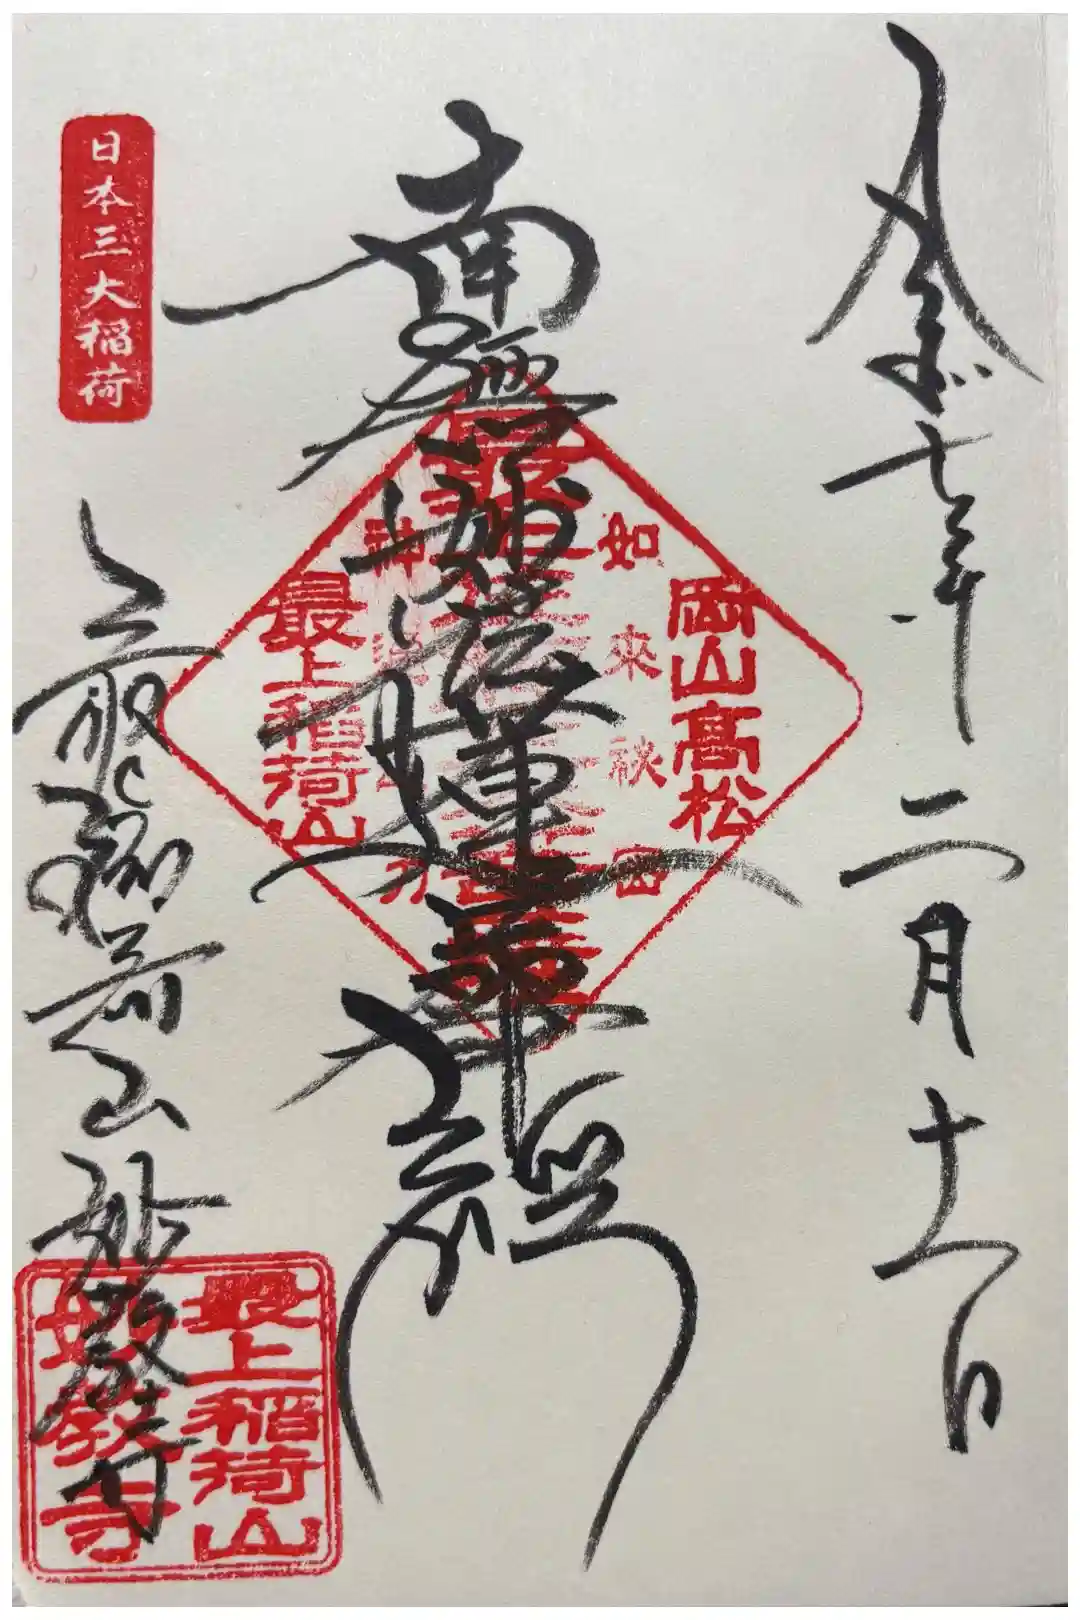 令和七年二月十一日
南無妙法蓮華経
最上稲荷山妙教寺
日本三大稲荷
岡山高松
如來秘密
神通之力
最上稲荷山
最上稲荷山
妙教寺